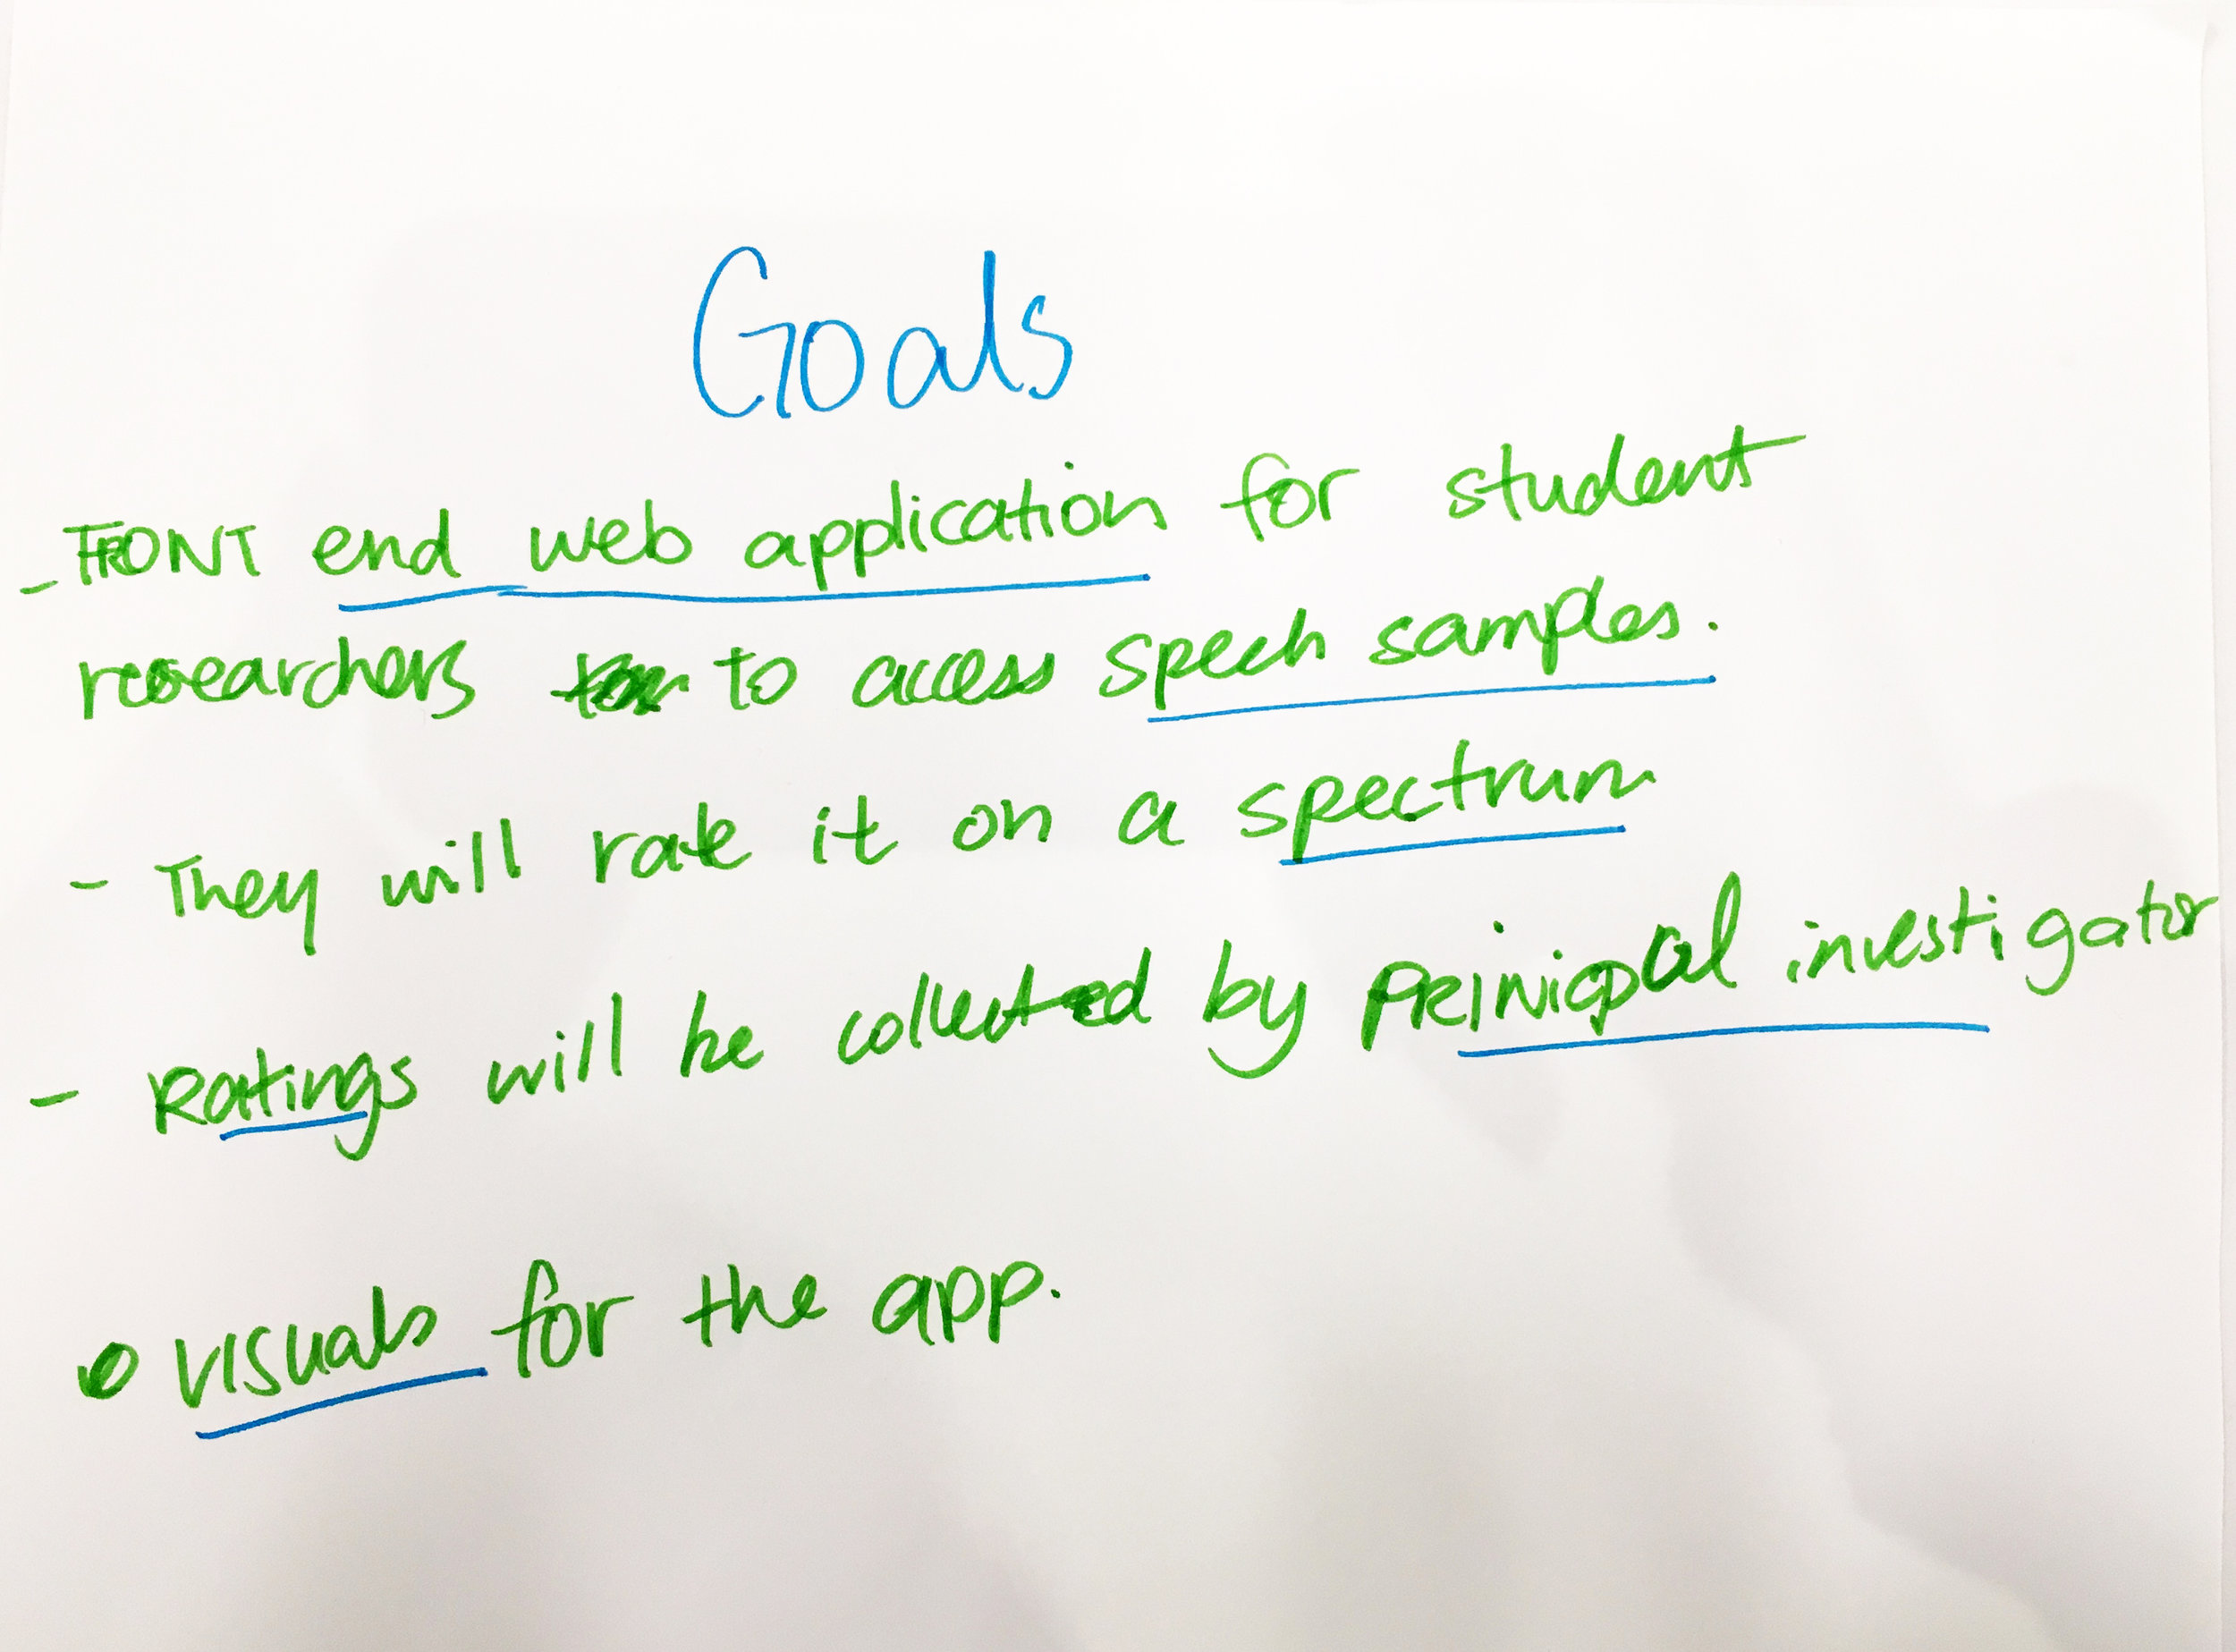 Goals
- FRONT end web application for student
researchers to access spech samples.
- They will rate it on a spectrum
- Ratings will be collected by PRINicpal investigator
• visuals for the app.